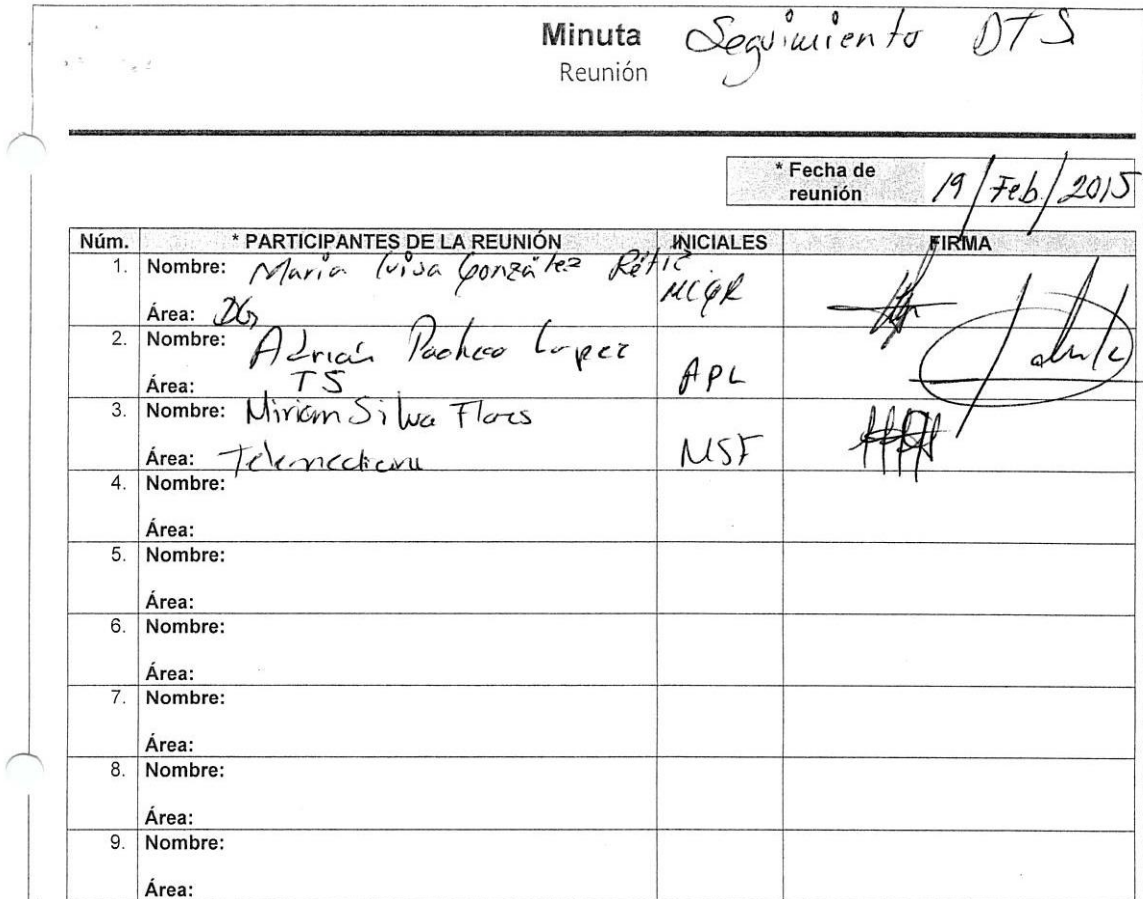 Minuta Seguimiento DTS
Reunión
* Fecha de reunión 19/Feb./2015
Núm. * PARTICIPANTES DE LA REUNIÓN INICIALES FIRMA
1. Nombre: Maria Luisa González
Área: DG
2. Nombre: Adrián Pacheco Lopez APL
Área: TS
3. Nombre: Miriam Silva Flores
Área: Telemedicina MSF
4. Nombre:
Área:
5. Nombre:
Área:
6. Nombre:
Área:
7. Nombre:
Área:
8. Nombre:
Área:
9. Nombre:
Área: